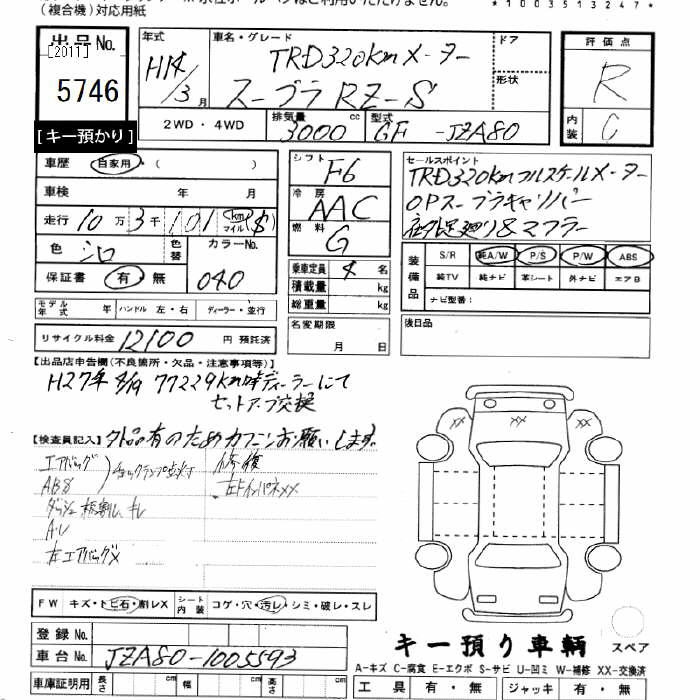 (複合機)対応用紙
*1003513247*
出品No.
[2011]
5746
[キー預かり]
年式
H14
/3月
車名・グレード
TRD320kmメーター
スープラRZ-S
ドア
形状
2WD・4WD
排気量
3000 cc
型式
GF -JZA80
評価点
R
内装
C
車歴 自家用・( )
車検 年 月
走行 10万3千101 km マイル ($)
色 シロ 色替 カラーNo.
保証書 有・無 040
モデル年式 年 ハンドル 左・右 ディーラー・並行
リサイクル料金 12100 円 預託済
シフト F6
冷房 AAC
燃料 G
乗車定員 4 名
積載量 kg
総重量 kg
名変期限
月 日
セールスポイント
TRD320kmフルスケールメーター
OPスープラキャリパー
社外足廻り&マフラー
装備品
S/R 純A/W P/S P/W ABS
純TV 純ナビ 革シート 外ナビ エアB
ナビ型番:
後日品
【出品店申告欄(不良箇所・欠品・注意事項等)】
H27年 8/19 77229km時ディーラーにて
セットアープ交換
【検査員記入】 外品有のためカクニンお願いします。
エアバッグ
ABS
チェックランプ点灯
修復
左Fインパネ××
ダッシュ板割レ キレ
A・レ
左エアバッグ×
××
××
FW キズ・トビ石・割レX シート内装 コゲ・穴・汚レ・シミ・破レ・スレ
登録No.
車台No. JZA80-1005593
車庫証明用 長さ cm 幅 cm 高さ cm
キー預り車輌
スペア
A-キズ C-腐食 E-エクボ S-サビ U-凹ミ W-補修 XX-交換済
工具 有・無 ジャッキ 有・無